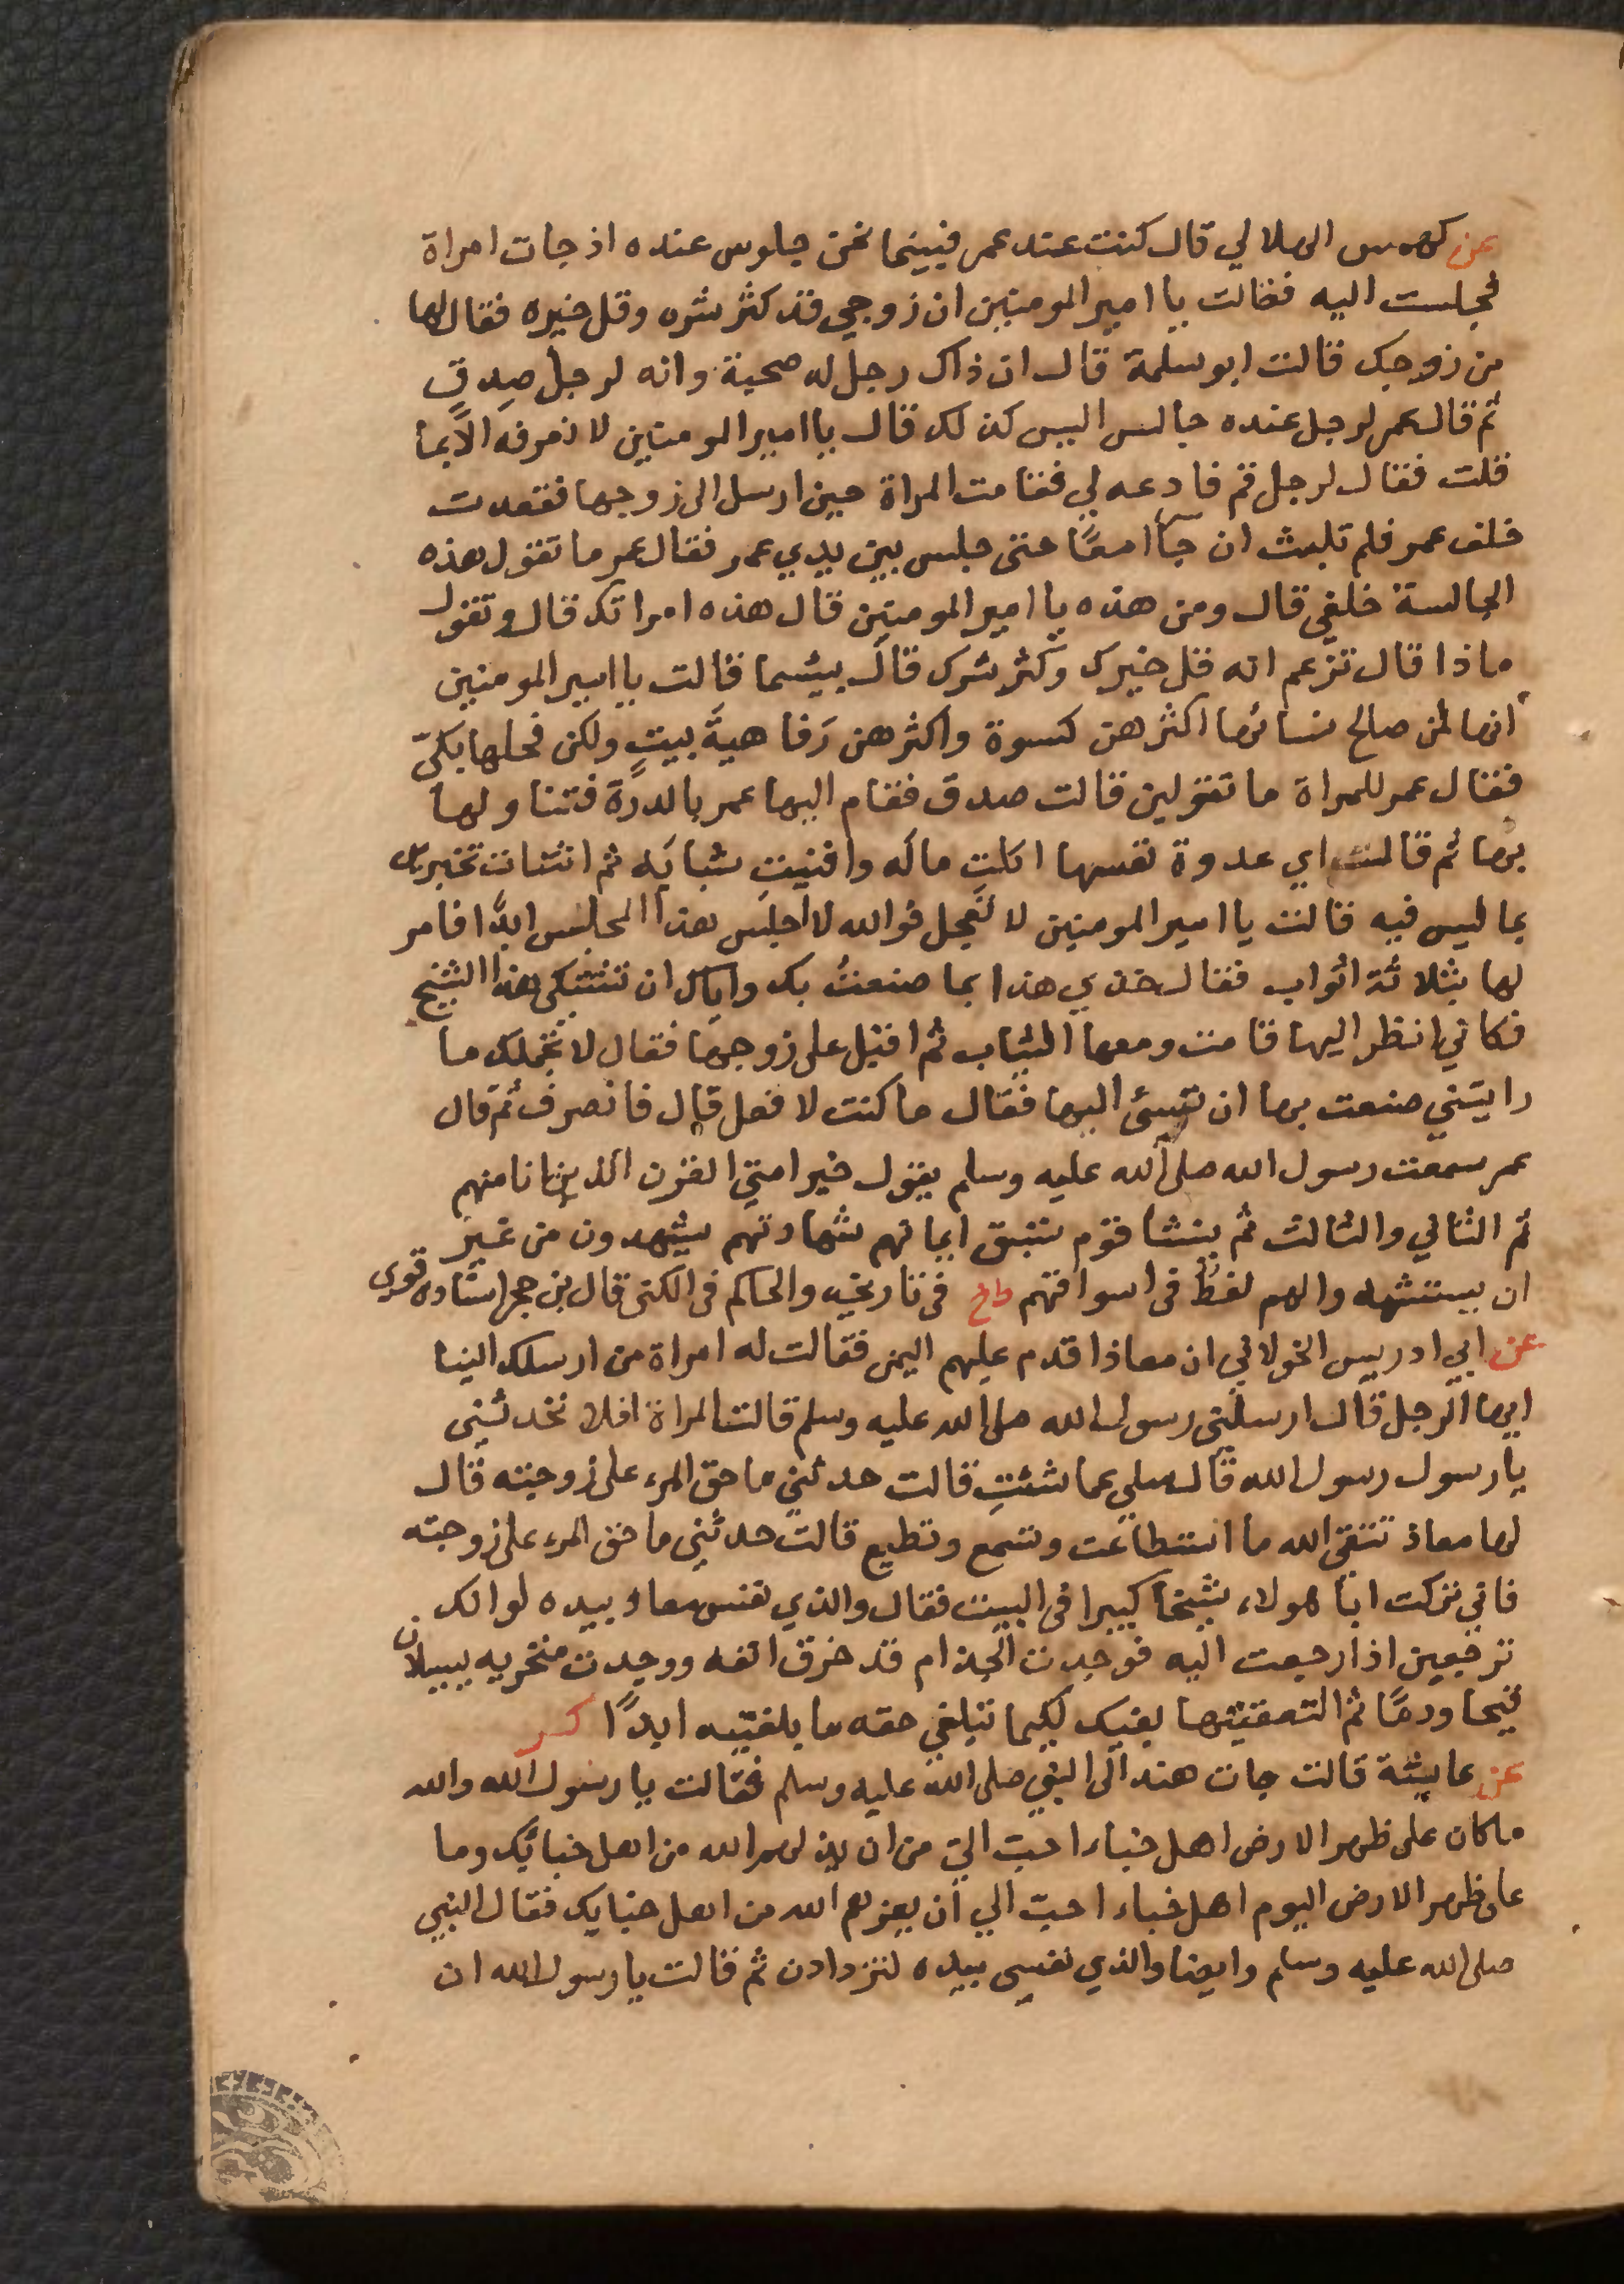 عن كهمس الهلالي قال كنت عند عمر فبينما نحن جلوس عنده اذ جات امراة
فجلست اليه فقالت يا امير المومنين ان زوجي قد كثر شره وقل خيره فقال لها
من زوجك قالت ابو سلمة قال ان ذاك رجل له صحبة وانه لرجل صدق
ثم قال عمر لرجل عنده جالس اليس كذلك قال يا امير المومنين لا نعرفه الا بما
قلت فقال لرجل قم فادعه لي فقامت المراة حين ارسل الى زوجها فقعدت
خلف عمر فلم تلبث ان جاا معًا حتى جلس بين يدي عمر فقال عمر ما تقول هذه
الجالسة خلفي قال ومن هذه يا امير المومنين قال هذه امراتك قال وتقول
ماذا قال تزعم انه قل خيرك وكثر شرك قال بيسما قالت يا امير المومنين
انها لمن صالح نسائها اكثرهن كسوة واكثرهن رَفاهيةَ بيتٍ ولكن فحلها بكيّ
فقال عمر للمراة ما تقولين قالت صدق فقام اليها عمر بالدرة فتناولها
بها ثم قالت اي عدوة نفسها اكلتِ ماله وافنيتِ شبابَه ثم انشات تخبرين
بما ليس فيه قالت يا امير المومنين لا تعجل فوالله لا اجلس هذا المجلس ابدًا فامر
لها بثلاثة اثواب فقال خذي هذا بما صنعتُ بك واياك ان تشتكى هذا الشيخ
فكاني انظر اليها قامت ومعها الثياب ثم اقبل على زوجها فقال لا يحملك ما
رايتني صنعت بها ان تسئ اليها فقال ما كنت لافعل قال فانصرف ثم قال
عمر سمعت رسول الله صلى الله عليه وسلم يقول خير امتي القرن الذين انا منهم
ثم الثاني والثالث ثم ينشا قوم تسبق ايمانهم شهادتهم يشهدون من غير
ان يستشهدوا لهم لغط في اسواقهم طخ في تاريخه والحاكم في الكنى قال بن حجر اسناده قوي
عن ابي ادريس الخولاني ان معاذا قدم عليهم اليمن فقالت له امراة من ارسلك الينا
ايها الرجل قال ارسلني رسول الله صلى الله عليه وسلم قالت المراة افلا تحدثني
يا رسول رسول الله قال سلي عما شئتِ قالت حدثني ما حق المرء على زوجته قال
لها معاذ تتقي الله ما استطاعت وتسمع وتطيع قالت حدثني ما حق المرء على زوجته
فاني تركت ابا هولاء شيخا كبيرا في البيت فقال والذي نفس معاذ بيده لو انك
ترجعين اذا رجعت اليه فوجدت الجذام قد خرق انفه ووجدت منخريه يسيلان
قيحا ودمًا ثم التقمتيهما بفيك لكيما تبلغي حقه ما بلغتيه ابدًا كر
عن عايشة قالت جات هند الى النبي صلى الله عليه وسلم فقالت يا رسول الله والله
ما كان على ظهر الارض اهل خباء احب الي من ان يذلهم الله من اهل خبائك وما
على ظهر الارض اليوم اهل خباء احبّ الي ان يعزهم الله من اهل خبايك فقال النبي
صلى الله عليه وسلم وايضا والذي نفسي بيده لتزدادن ثم قالت يا رسول الله ان